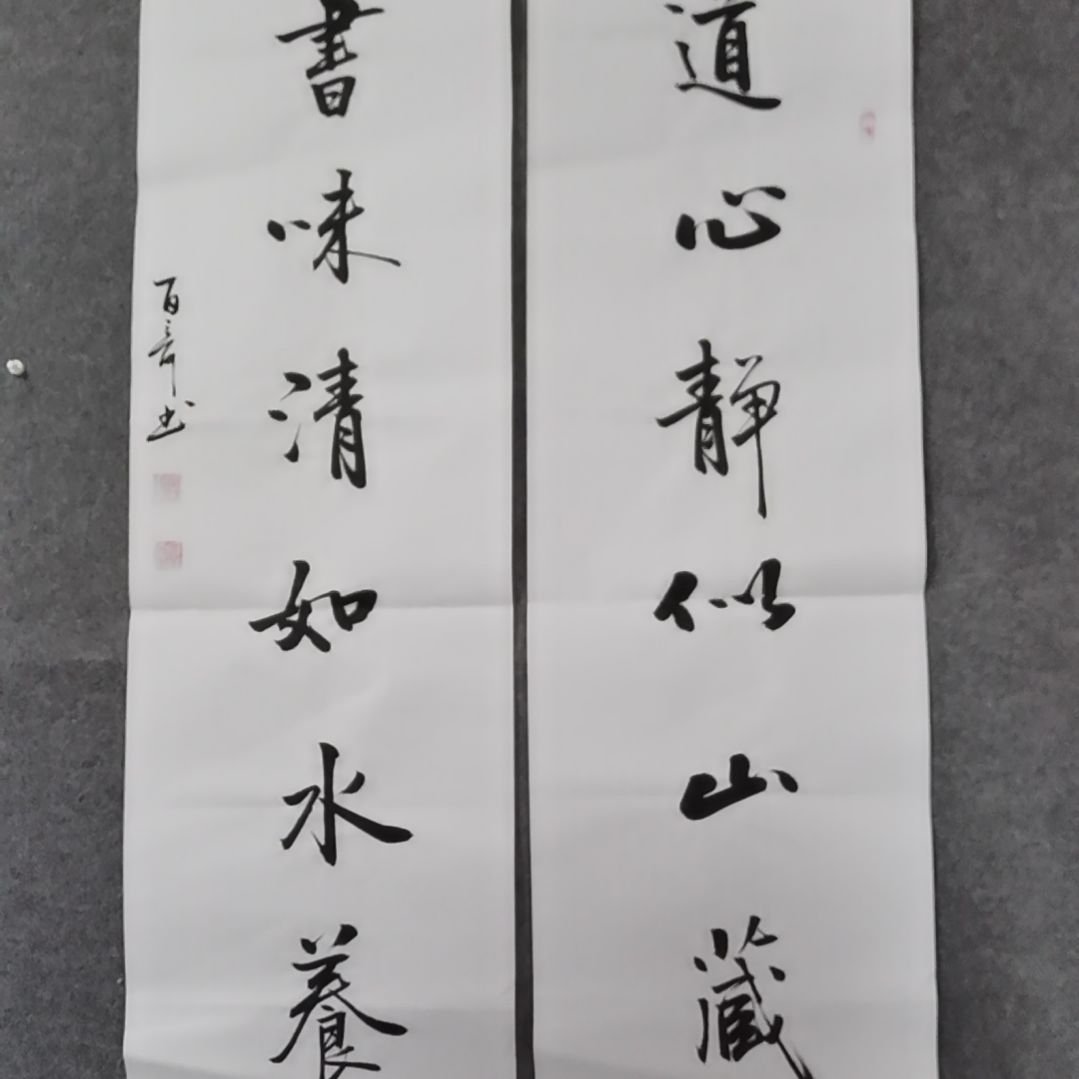 道心靜似山藏
書味清如水養
百奇书